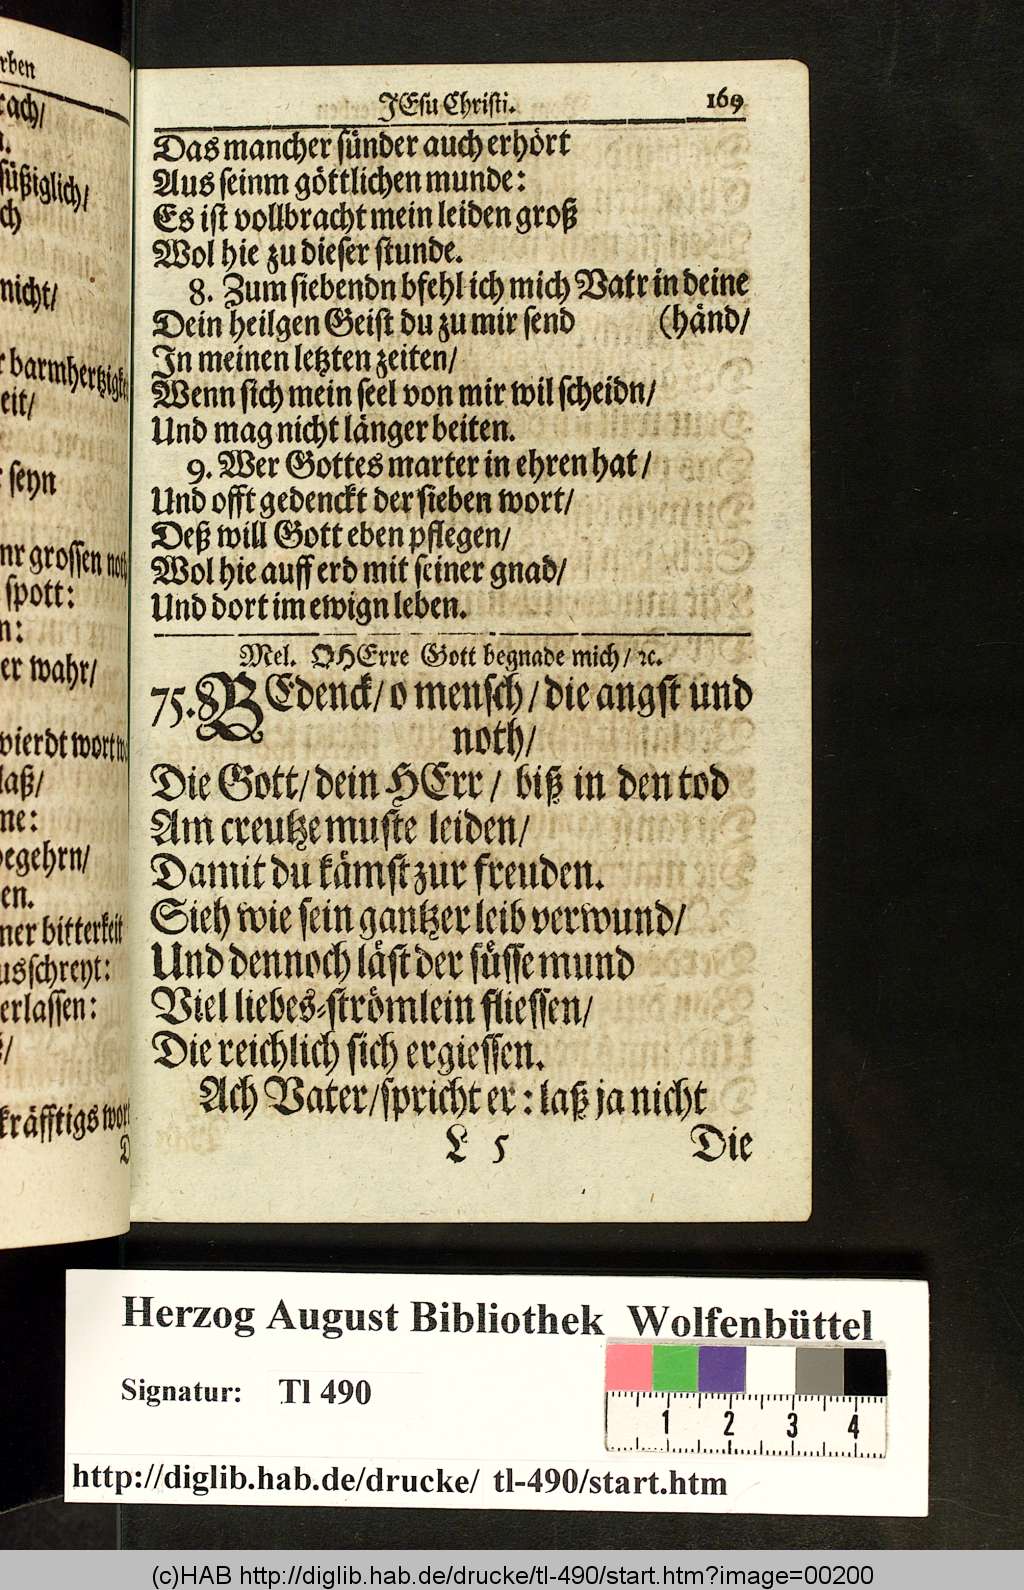 rben
rach/
n.
süßiglich/
ch
nicht/
r barmhertzigke
eit/
r seyn
nr grossen noth
spott:
n:
er wahr/
vierdt wort
laß/
me:
begehrn/
en.
ner bitterkeit
usschreyt:
erlassen:
kräfftigs wort
D
JEsu Christi. 169
Das mancher sünder auch erhört
Aus seinm göttlichen munde:
Es ist vollbracht mein leiden groß
Wol hie zu dieser stunde.
8. Zum siebendn bfehl ich mich Vatr in deine
Dein heilgen Geist du zu mir send (händ/
In meinen letzten zeiten/
Wenn sich mein seel von mir wil scheidn/
Und mag nicht länger beiten.
9. Wer Gottes marter in ehren hat/
Und offt gedenckt der sieben wort/
Deß will Gott eben pflegen/
Wol hie auff erd mit seiner gnad/
Und dort im ewign leben.
Mel. O HErre Gott begnade mich/ ꝛc.
75. BEdenck/ o mensch/ die angst und
noth/
Die Gott/ dein HErr/ biß in den tod
Am creutze muste leiden/
Damit du kämst zur freuden.
Sieh wie sein gantzer leib verwund/
Und dennoch läst der süsse mund
Viel liebes-strömlein fliessen/
Die reichlich sich ergiessen.
Ach Vater/ spricht er: laß ja nicht
L 5 Die
Herzog August Bibliothek Wolfenbüttel
Signatur: Tl 490
1 2 3 4
http://diglib.hab.de/drucke/ tl-490/start.htm
(c)HAB http://diglib.hab.de/drucke/tl-490/start.htm?image=00200